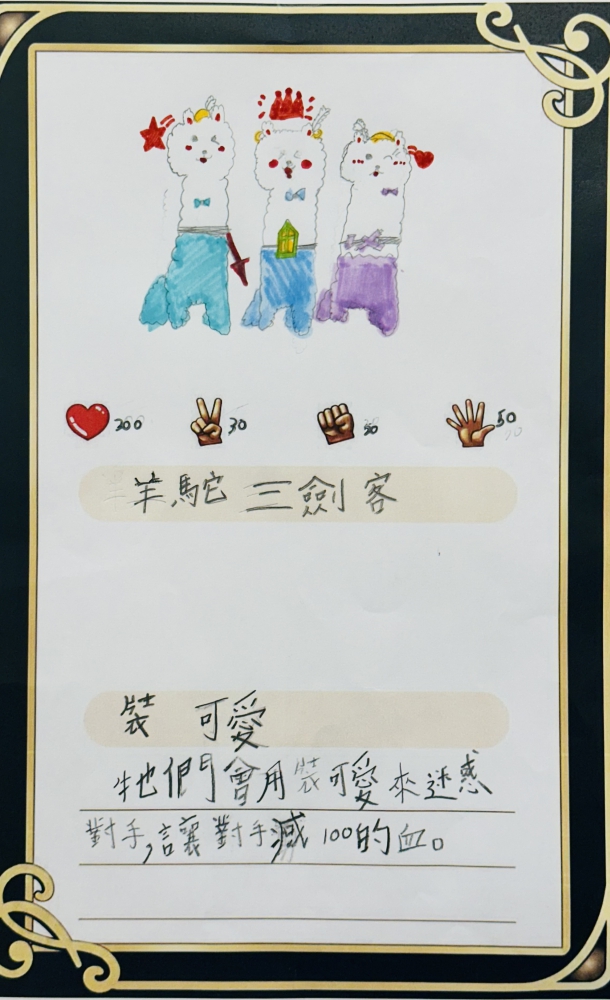 200 30 50
羊駝三劍客
裝可愛
牠們會用裝可愛來迷惑
對手,讓對手減100的血。